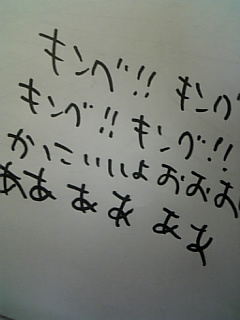 キンベ!! キンベ
キンベ!! キンベ!!
かこいいよおおお
ああああああ